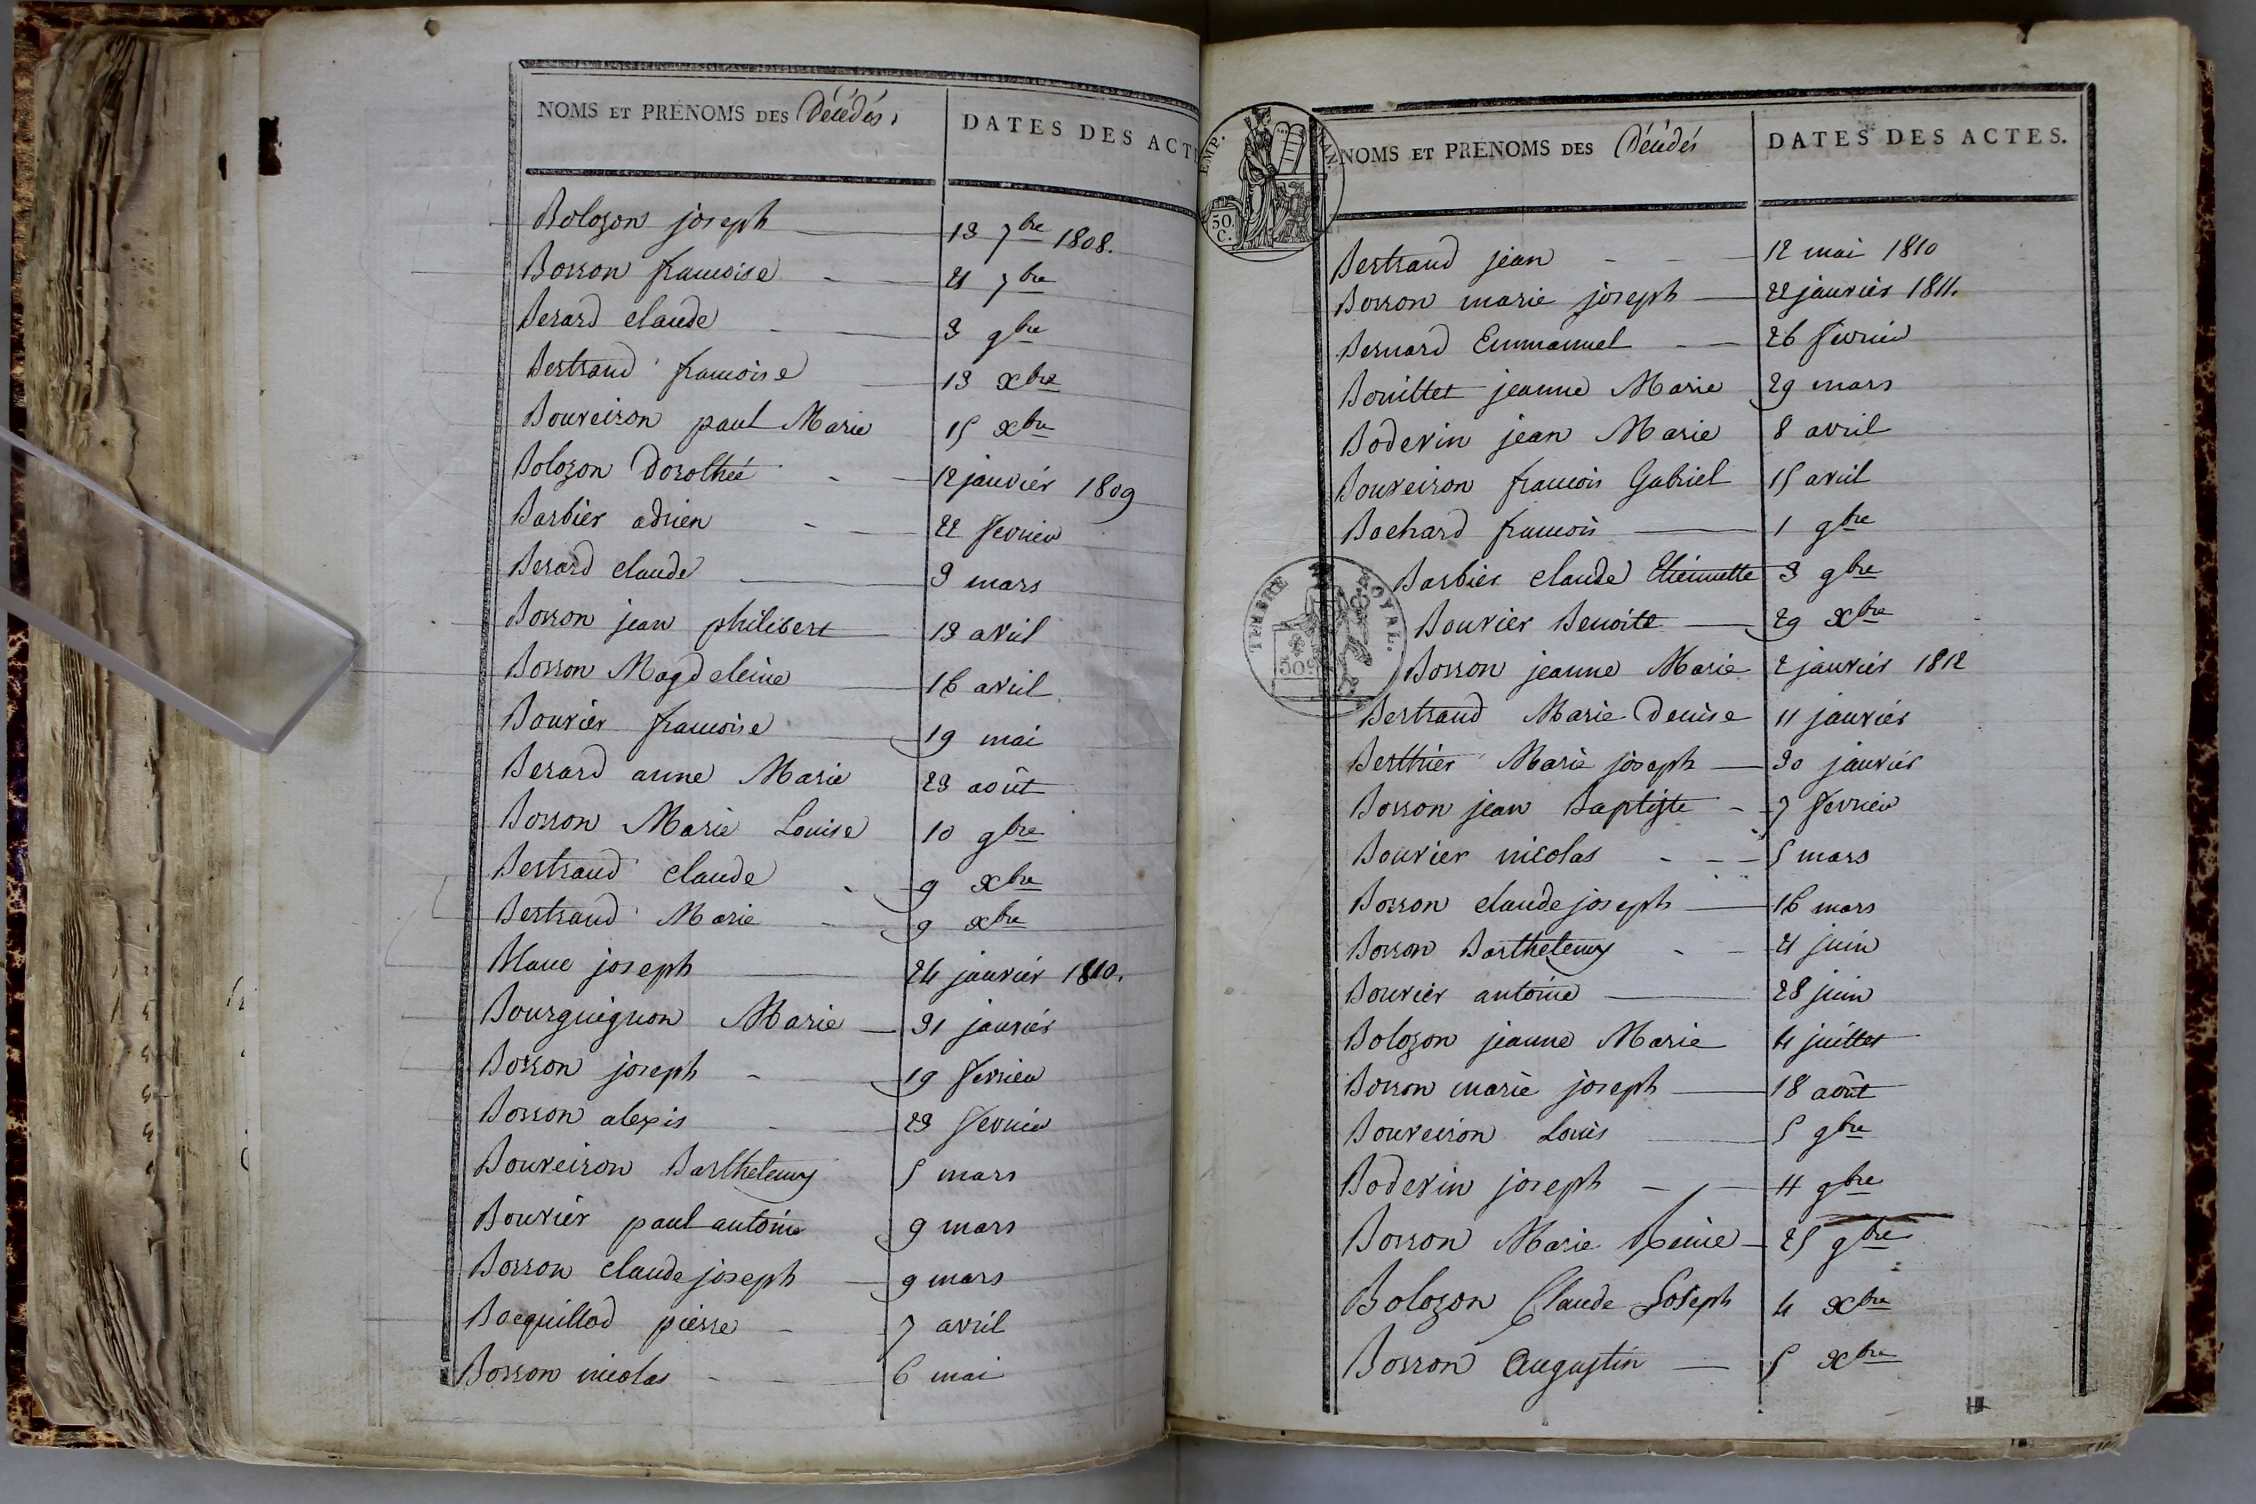 NOMS ET PRÉNOMS DES Décédés, DATES DES ACT
Bolozon joseph 13 7bre 1808.
Bosson francoise 21 7bre
Berard claude 3 9bre
Bertrand francoise 13 xbre
Bouveiron paul Marie 15 xbre
Bolozon Dorothée 12 janvier 1809
Barbier adrien 22 fevrier
Berard claude 3 mars
Bosson jean philibert 13 avril
Bosson Magdeleine 16 avril
Bouvier francoise 19 mai
Berard anne Marie 23 août
Bosson Marie Louise 10 9bre
Bertrand claude 9 xbre
Bertrand Marie 9 xbre
Blanc joseph 24 janvier 1810.
Bourguignon Marie 31 janvier
Bosson joseph 19 fevrier
Bosson alexis 23 fevrier
Bouveiron Barthelemy 5 mars
Bouvier paul antoine 9 mars
Bosson claude joseph 9 mars
Bocquillod pierre 7 avril
Bosson nicolas 6 mai
NOMS ET PRÉNOMS DES Décédés DATES DES ACTES.
Bertrand jean 12 mai 1810
Bosson marie joseph 22 janvier 1811.
Bernard Emmanuel 26 fevrier
Bouillet jeanne Marie 29 mars
Boderin jean Marie 8 avril
Bouveiron francois Gabriel 15 avril
Bochard francois 1 9bre
Barbier claude Etiennette 3 9bre
Bouvier Benoite 29 xbre
Bosson jeanne Marie 2 janvier 1812
Bertrand Marie Denise 11 janvier
Berthier Marie joseph 30 janvier
Bosson jean Baptiste 7 fevrier
Bouvier nicolas 5 mars
Bosson claude joseph 16 mars
Bosson Barthelemy 21 juin
Bouvier antoine 28 juin
Bolozon jeanne Marie 4 juillet
Bosson marie joseph 18 août
Bouveiron Louis 5 9bre
Boderin joseph 11 9bre
Bosson Marie Reine 25 9bre
Bolozon Claude Joseph 4 xbre
Bosson Augustin 5 xbre
EMP.
50.
C.
TIMBRE ROYAL.
50c